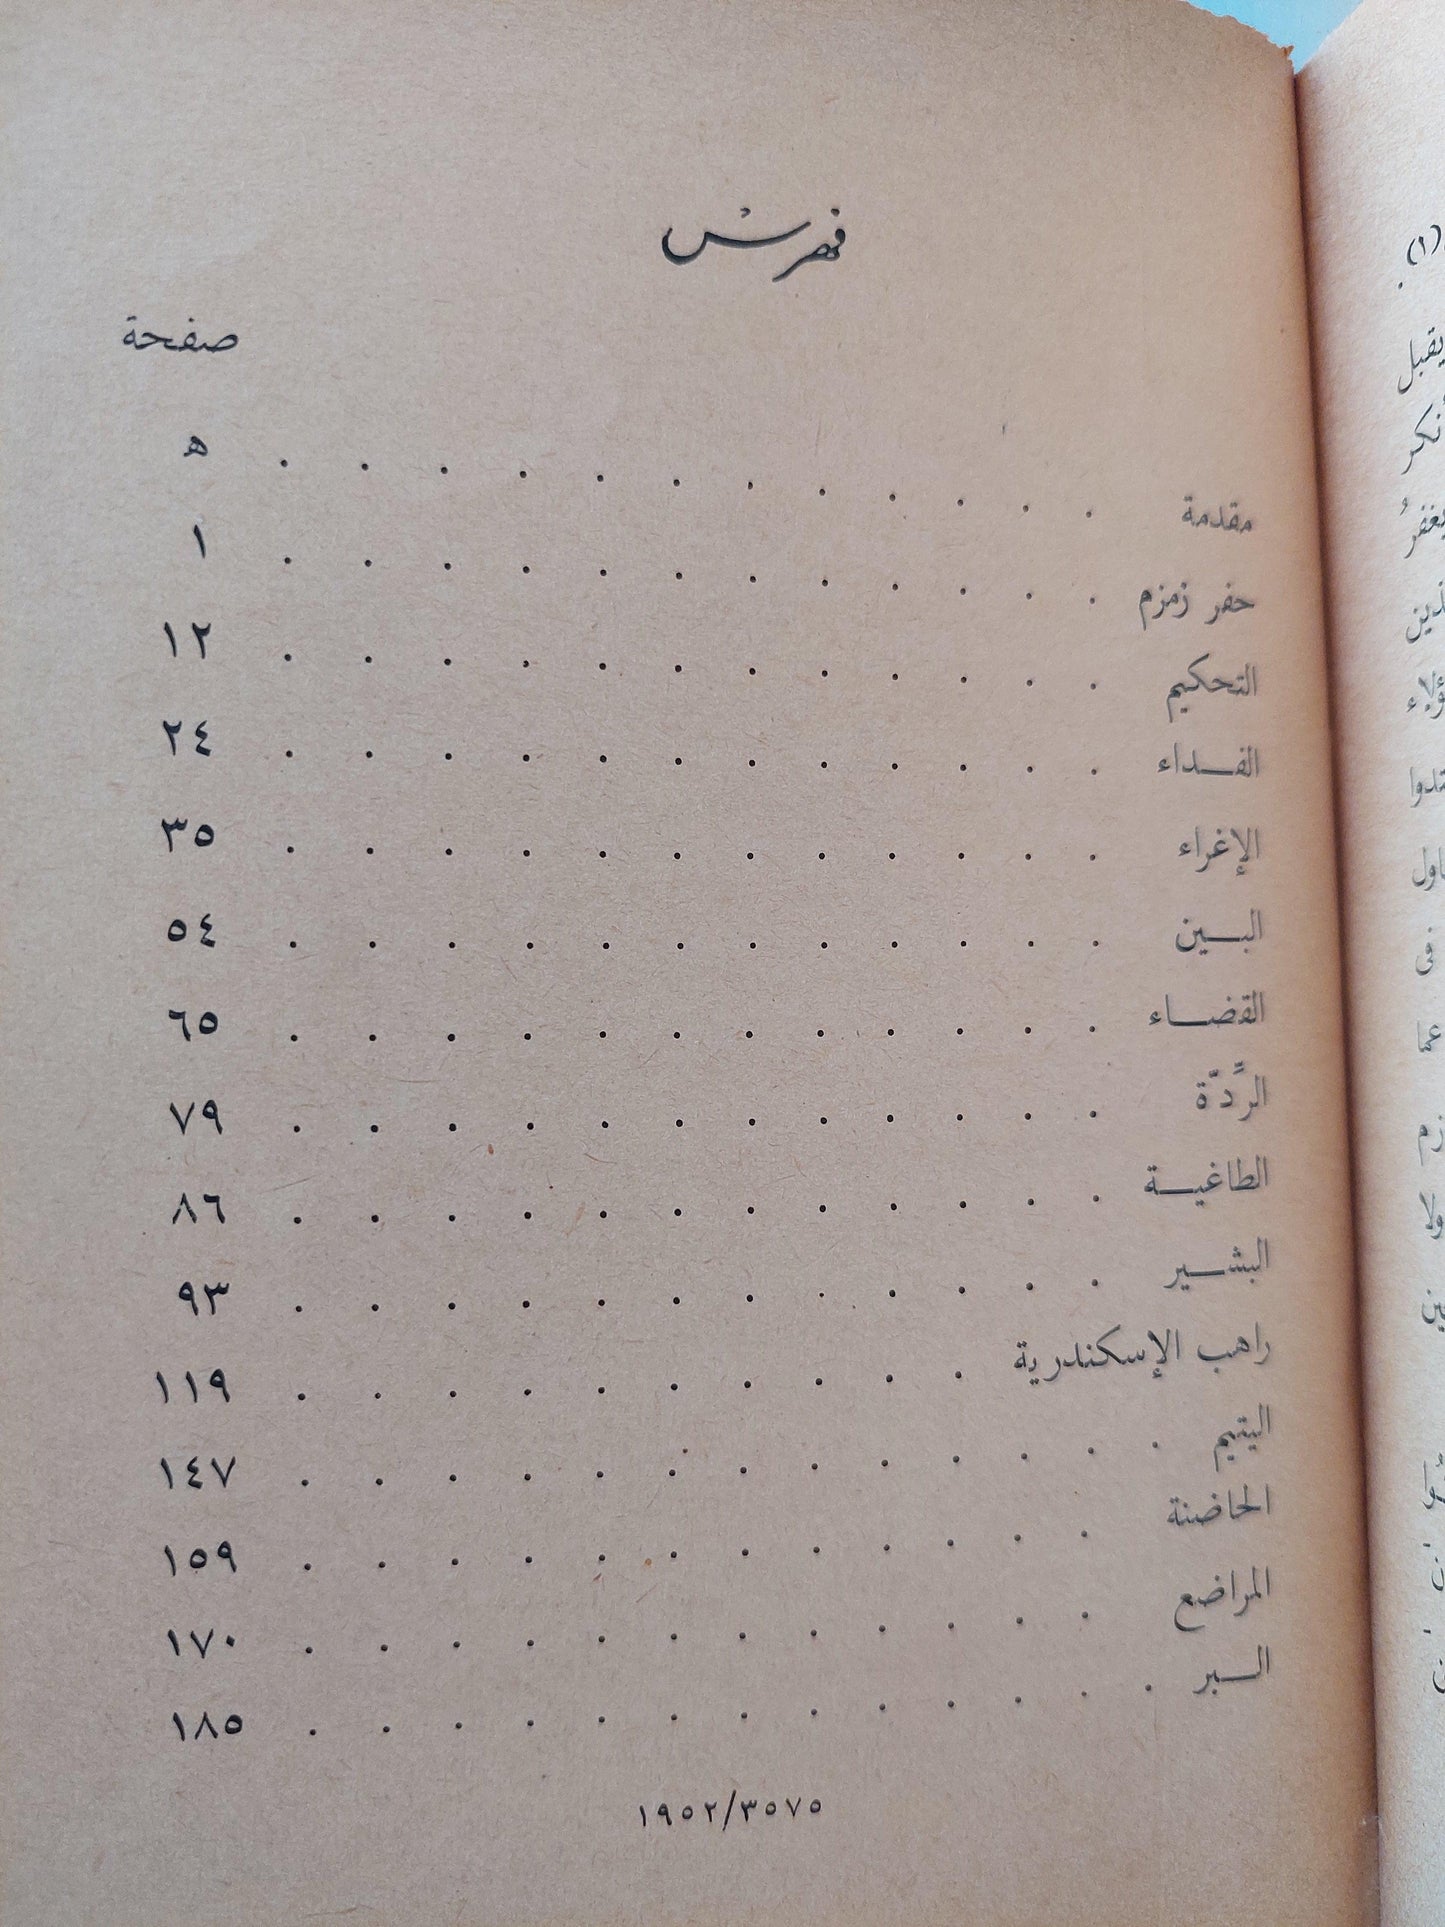 فهرس
صفحة
مقدمة . . . . . . . . . . . . ه
حفر زمزم . . . . . . . . . . . . ١
التحكيم . . . . . . . . . . . . ١٢
الفداء . . . . . . . . . . . . ٢٤
الإغراء . . . . . . . . . . . . ٣٥
البين . . . . . . . . . . . . ٥٤
القضاء . . . . . . . . . . . . ٦٥
الرِّدّة . . . . . . . . . . . . ٧٩
الطاغية . . . . . . . . . . . . ٨٦
البشير . . . . . . . . . . . . ٩٣
راهب الإسكندرية . . . . . . . . . . ١١٩
اليتيم . . . . . . . . . . . . . ١٤٧
الحاضنة . . . . . . . . . . . . ١٥٩
المراضع . . . . . . . . . . . . ١٧٠
البر . . . . . . . . . . . . . ١٨٥
١٩٥٢/٣٥٧٥
(١)
يقبل
أنكر
يغفرُ
فى
عما
ولا